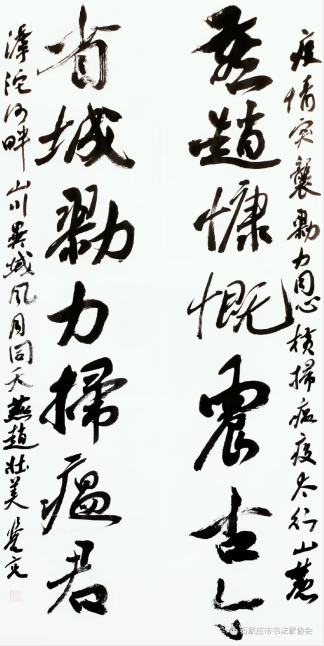 疫情突襲勠力同心橫掃瘟疫太行山麓
燕趙慷慨震古今
省城勠力掃瘟君
滹沱河畔山川異域風月同天燕趙壯美
石家庄市书法家协会